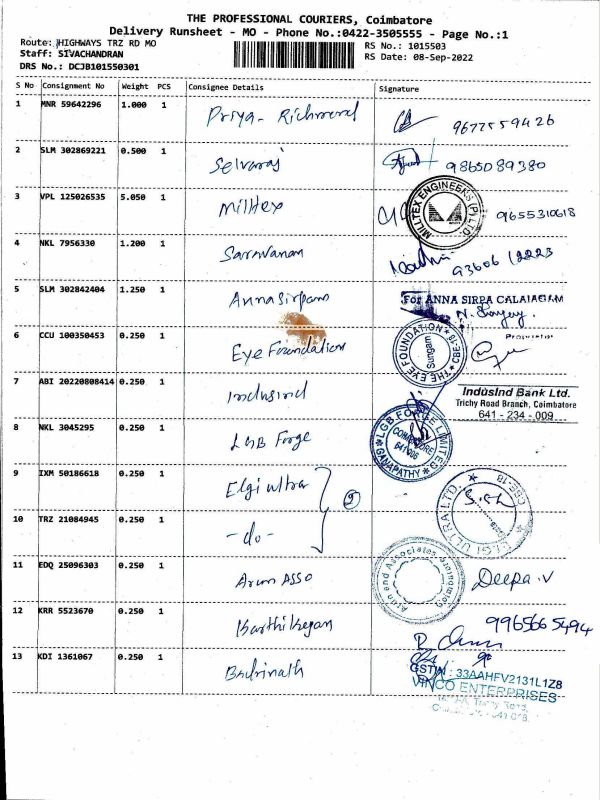 THE PROFESSIONAL COURIERS, Coimbatore
Delivery Runsheet - MO - Phone No.:0422-3505555 - Page No.:1
Route: HIGHWAYS TRZ RD MO
RS No.: 1015503
Staff: SIVACHANDRAN
RS Date: 08-Sep-2022
DRS No.: DCJB101550301
S No Consignment No Weight PCS Consignee Details Signature
1 MNR 59642296 1.000 1 Priya- Richmond 9677559426
2 SLM 302869221 0.500 1 Selvaraj 9865089380
3 VPL 125026535 5.050 1 Milltex 9655310618
MILLTEX ENGINEERS (P) LTD.
4 NKL 7956330 1.200 1 Saravanan 93606 12223
5 SLM 302842404 1.250 1 Annasirpam
For ANNA SIRPA CALAIAGAM
Proprietor
6 CCU 100350453 0.250 1 Eye Foundation
THE EYE FOUNDATION CBE-18
Sungam
7 ABI 20220808414 0.250 1 Indusind
IndusInd Bank Ltd.
Trichy Road Branch, Coimbatore
641 - 234 - 009
8 NKL 3045295 0.250 1 LGB Forge
LGB FORGE LIMITED
COIMBATORE
641 006
GANAPATHY
9 IXM 50186618 0.250 1 Elgi ultra
2
ELGI ULTRA LTD. CBE-18
10 TRZ 21084945 0.250 1 -do-
11 EDQ 25096303 0.250 1 Arun Asso
Arun and Associates Coimbatore
Deepa.V
12 KRR 5523670 0.250 1 Karthikeyan 9965665494
13 KDI 1361067 0.250 1 Badrinath
GSTIN : 33AAHFV2131L1Z8
VINCO ENTERPRISES